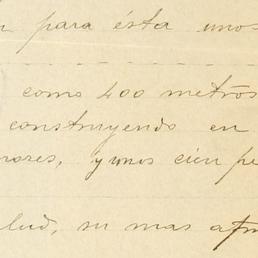 para ésta unos
como 400 metros
construyendo en
ores, y unos cien pe
lud, su mas afm